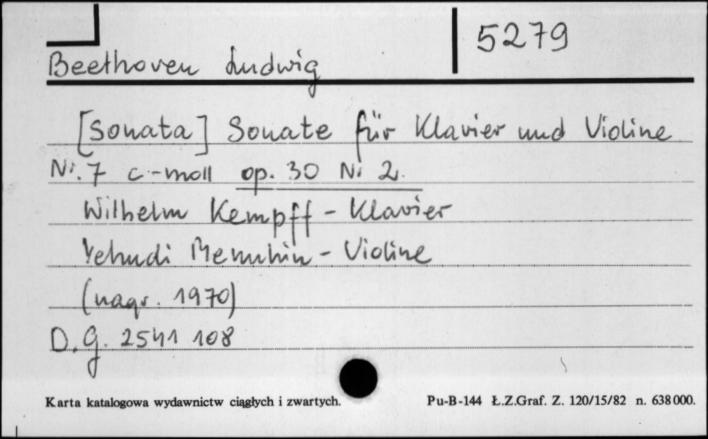 5279
Beethoven Ludwig
[Sonata] Sonate für Klavier und Violine
Nr. 7 c-moll op. 30 Nr 2.
Wilhelm Kempff - Klavier
Yehudi Menuhin - Violine
(nagr. 1970)
D.G. 2541 108
Karta katalogowa wydawnictw ciągłych i zwartych.
Pu-B-144 Ł.Z.Graf. Z. 120/15/82 n. 638000.